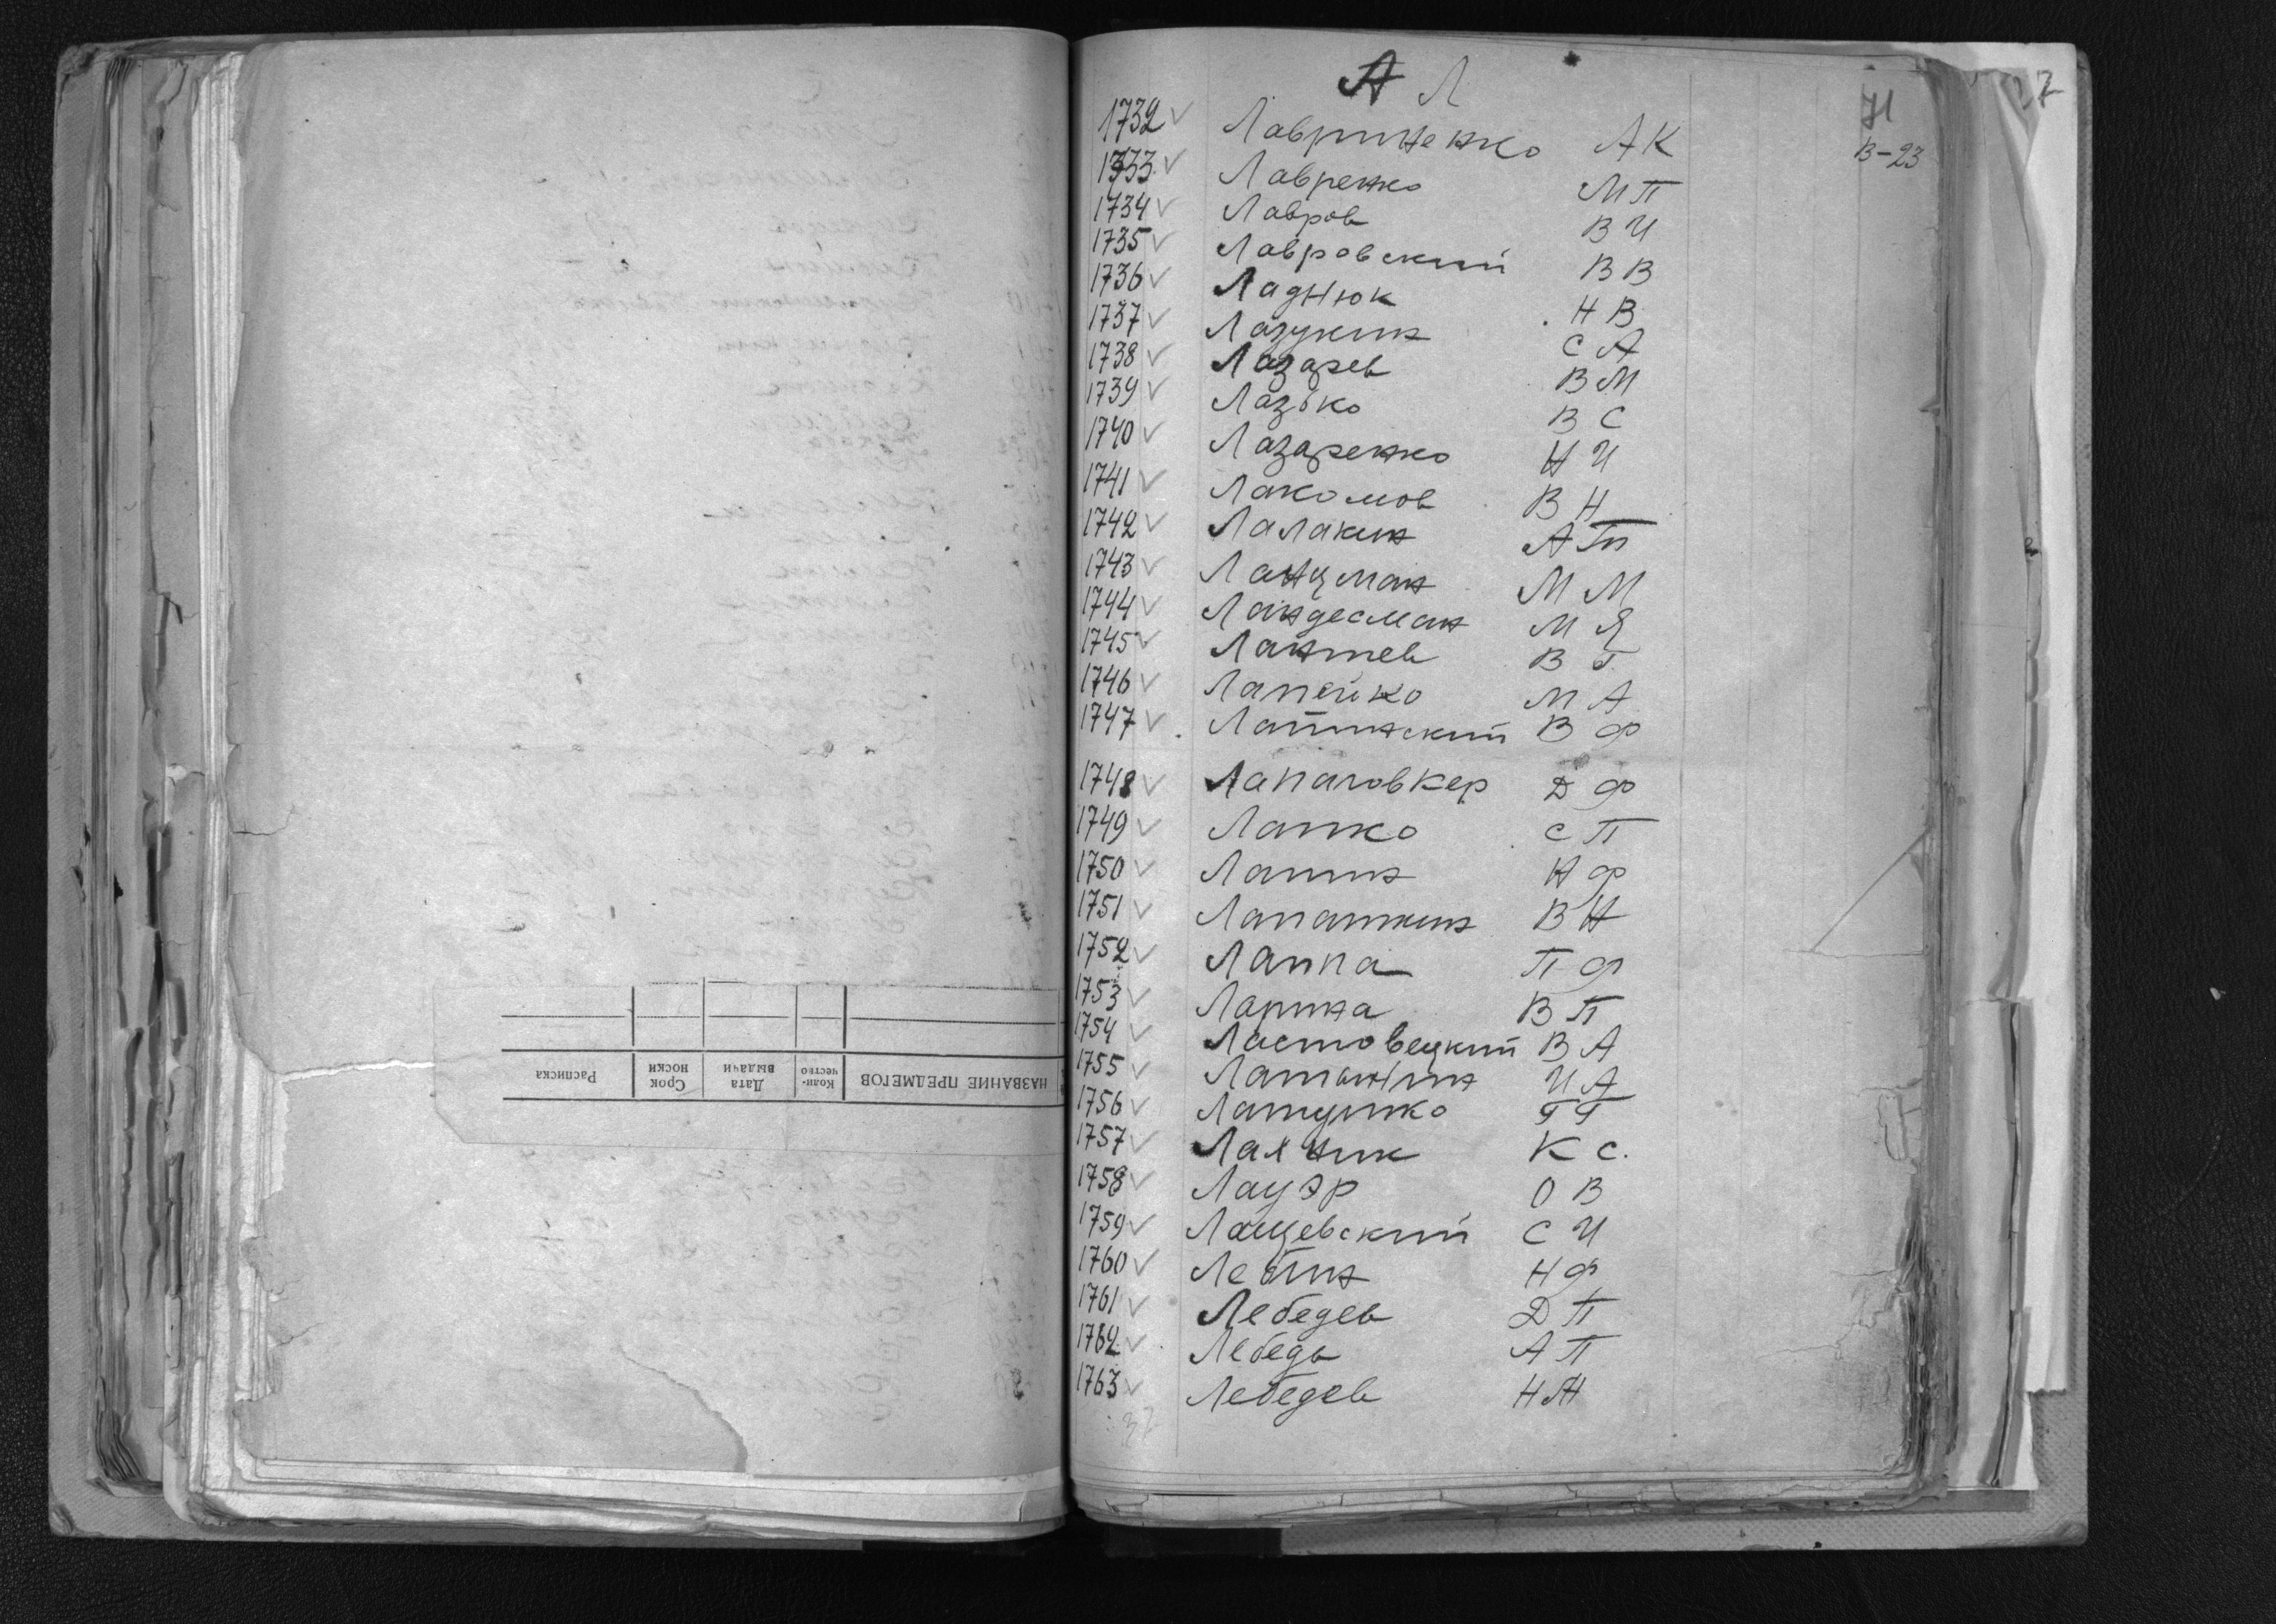 НАЗВАНИЕ ПРЕДМЕТОВ
Коли-
чество
Дата
выдачи
Срок
носки
Расписка
7
А Л
71
В-23
1732 Лавриненко АК
1733 Лавренко МП
1734 Лавров ВИ
1735 Лавровский ВВ
1736 Ладнюк НВ
1737 Лазукин СА
1738 Лазарев ВМ
1739 Лазько ВС
1740 Лазаренко НИ
1741 Лакомов ВН
1742 Лалакин АП
1743 Ланцман ММ
1744 Ландесман МЯ
1745 Лаптев ВГ
1746 Лапейко МА
1747 Лапинский ВФ
1748 ДФ
1749 Лапко СП
1750 Лапин НФ
1751 Лапаткин ВН
1752 Лаппа ПФ
1753 Ларина ВП
1754 Ластовецкий ВА
1755 ИА
1756 Латушко ГГ
1757 КС.
1758 Лауэр ОВ
1759 Лащевский СИ
1760 НФ
1761 Лебедев ДП
1762 Лебедь АП
1763 Лебедев Н
32